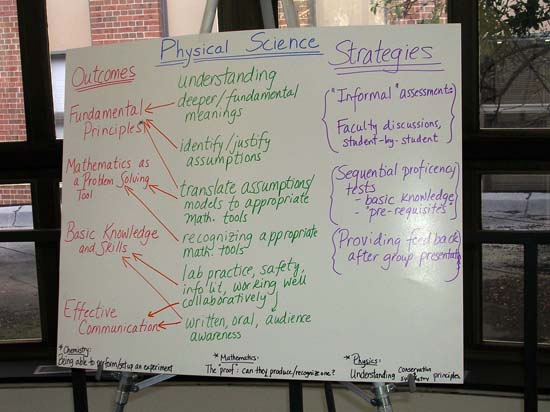 Physical Science
Outcomes
Fundamental
Principles
Mathematics as
a Problem Solving
Tool
Basic Knowledge
and Skills
Effective
Communication
understanding
deeper/fundamental
meanings
identify/justify
assumptions
translate assumptions/
models to appropriate
math. tools
recognizing appropriate
math. tools
lab practice, safety,
info lit, working well
collaboratively
written, oral, audience
awareness
Strategies
"Informal" assessment:
Faculty discussions,
student-by-student
Sequential proficency
tests
- basic knowledge
- "pre-requisites"
Providing feedback
after group presentatn
*Chemistry:
Being able to perform/setup an experiment
*Mathematics:
The "proof": can they produce/recognize one?
*Physics:
Understanding conservation principles.
symmetry